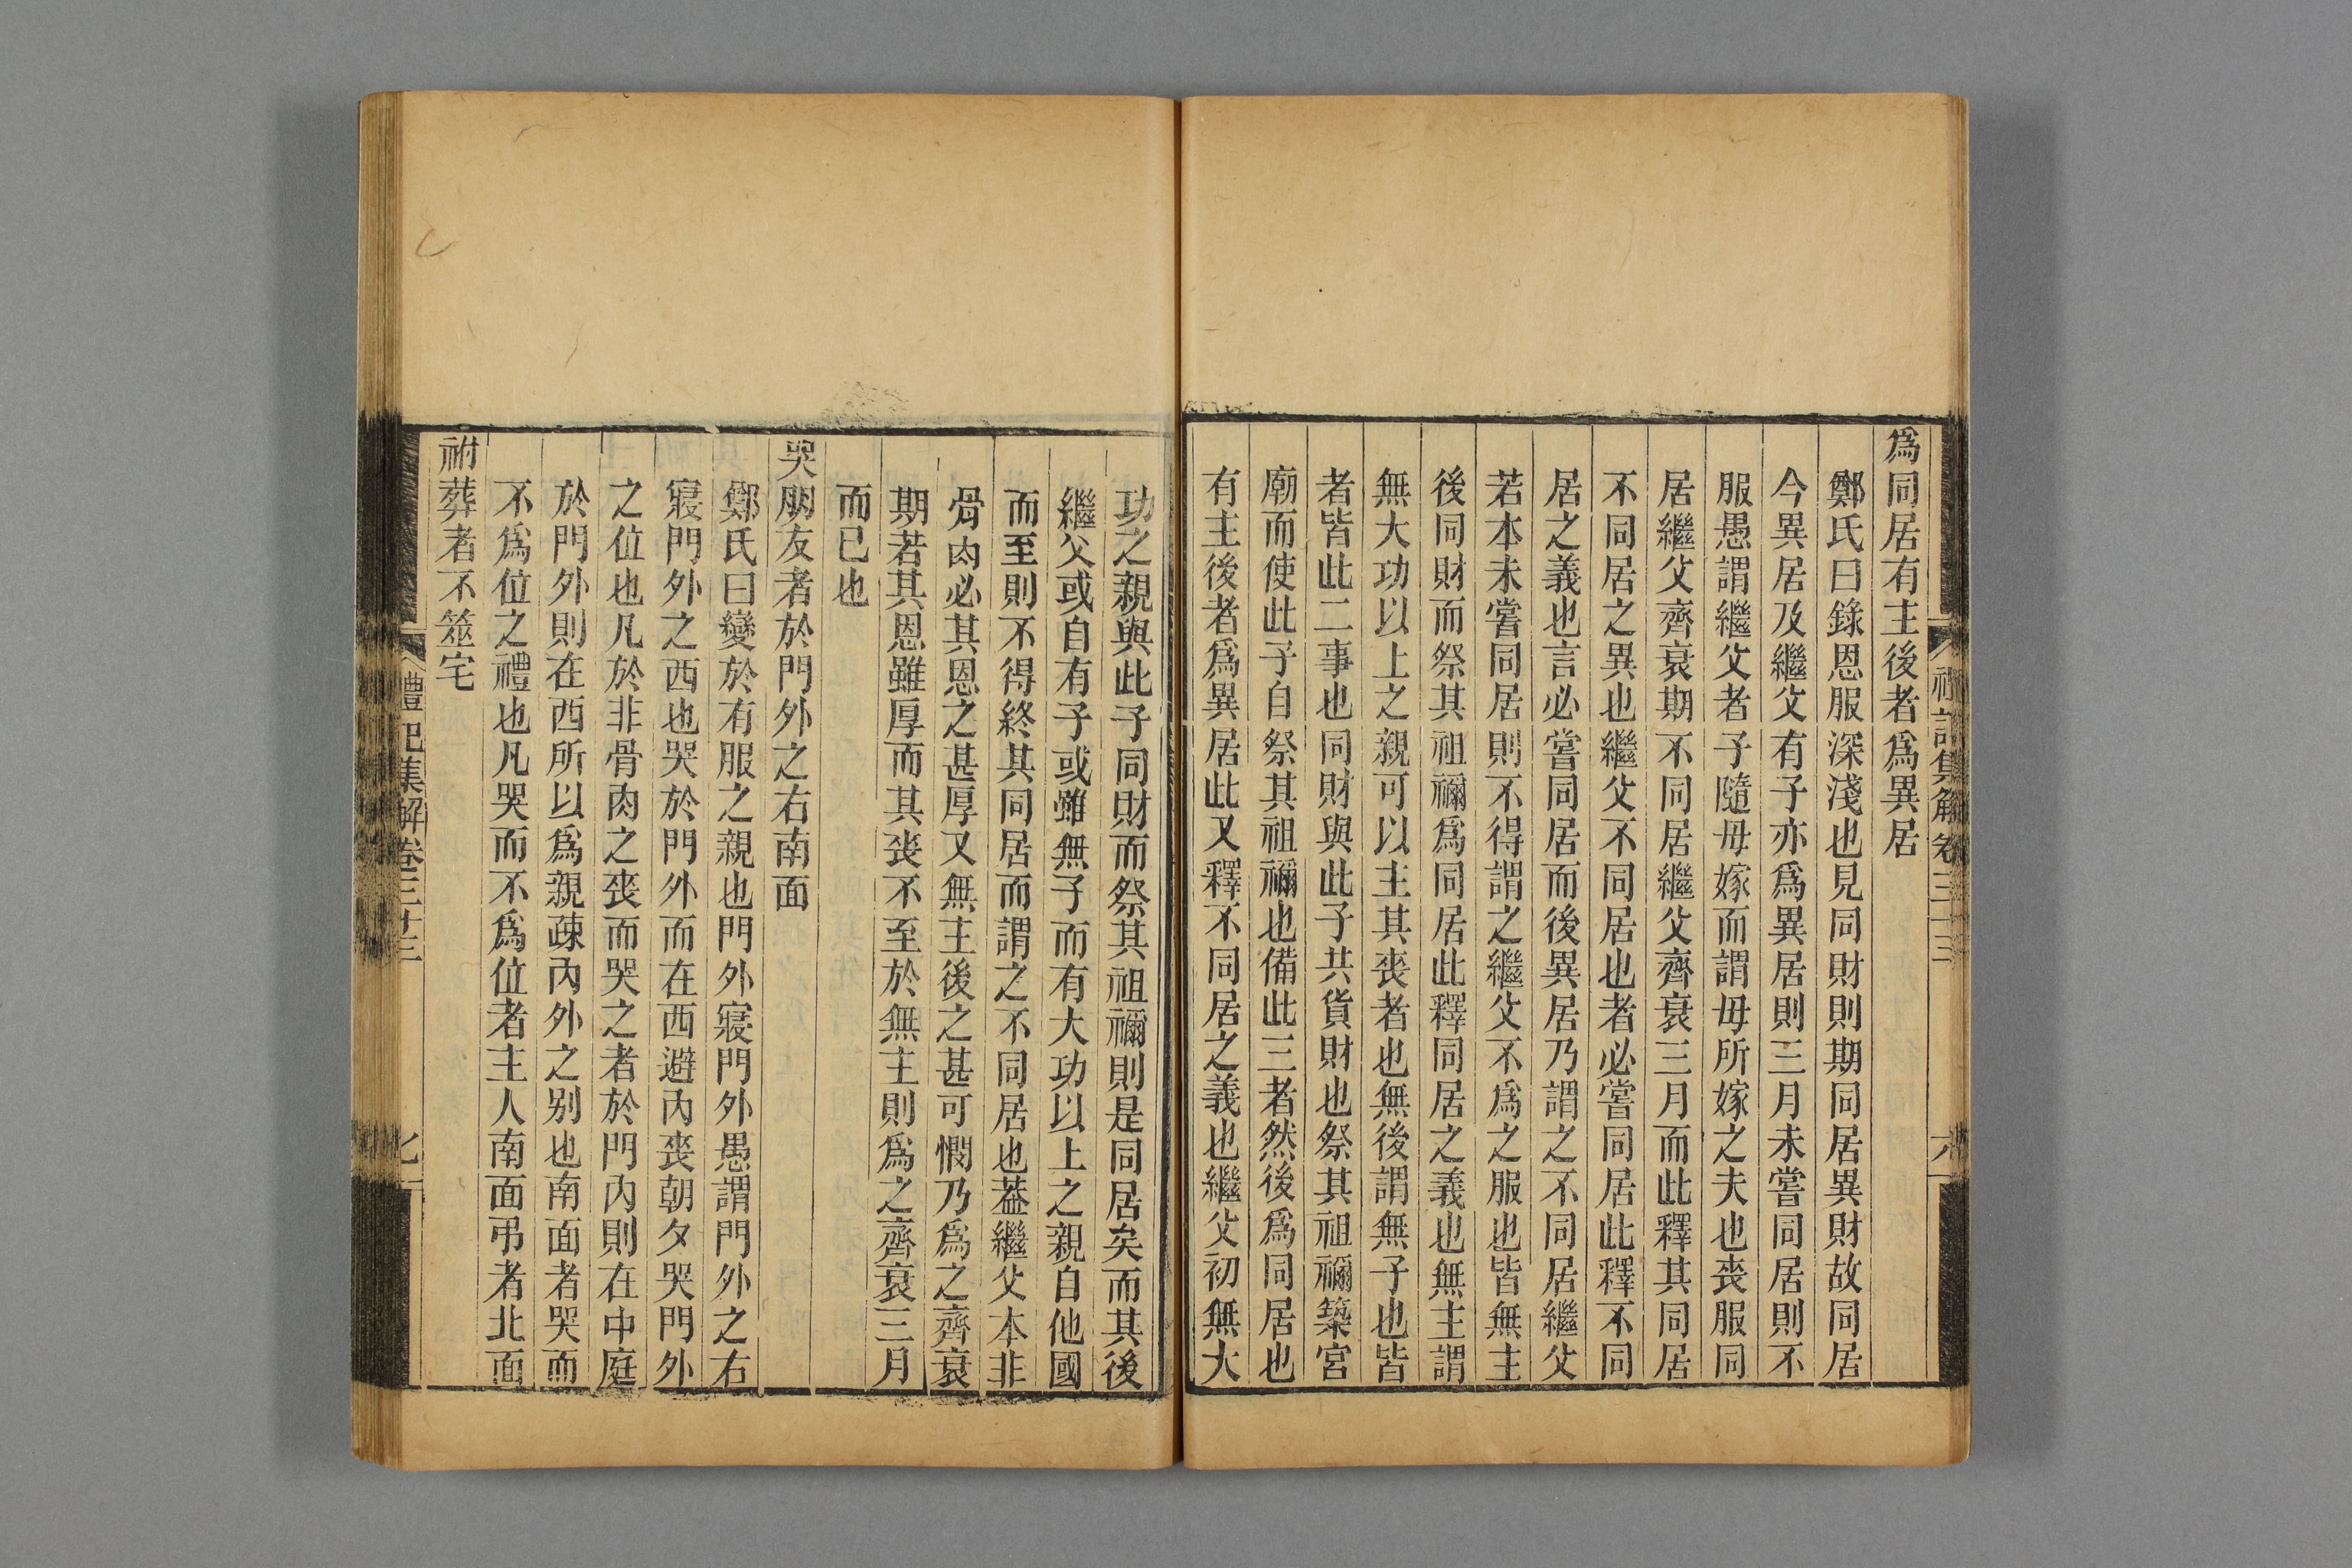 爲同居有主後者爲異居
鄭氏曰錄恩服深淺也見同財則期同居異財故同居
今異居及繼父有子亦爲異居則三月未嘗同居則不
服愚謂繼父者子隨母嫁而謂母所嫁之夫也喪服同
居繼父齊衰期不同居繼父齊衰三月而此釋其同居
不同居之異也繼父不同居也者必嘗同居此釋不同
居之義也言必嘗同居而後異居乃謂之不同居繼父
若本未嘗同居則不得謂之繼父不爲之服也皆無主
後同財而祭其祖禰爲同居此釋同居之義也無主謂
無大功以上之親可以主其喪者也無後謂無子也皆
者皆此二事也同財與此子共貨財也祭其祖禰築宮
廟而使此子自祭其祖禰也備此三者然後爲同居也
有主後者爲異居此又釋不同居之義也繼父初無大
功之親與此子同財而祭其祖禰則是同居矣而其後
繼父或自有子或雖無子而有大功以上之親自他國
而至則不得終其同居而謂之不同居也葢繼父本非
骨肉必其恩之甚厚又無主後之甚可憫乃爲之齊衰
期若其恩雖厚而其喪不至於無主則爲之齊衰三月
而已也
哭朋友者於門外之右南面
鄭氏曰變於有服之親也門外寢門外愚謂門外之右
寢門外之西也哭於門外而在西避內喪朝夕哭門外
之位也凡於非骨肉之喪而哭之者於門內則在中庭
於門外則在西所以爲親疎內外之别也南面者哭而
不爲位之禮也凡哭而不爲位者主人南面弔者北面
祔葬者不筮宅
禮記集解卷三十三
七